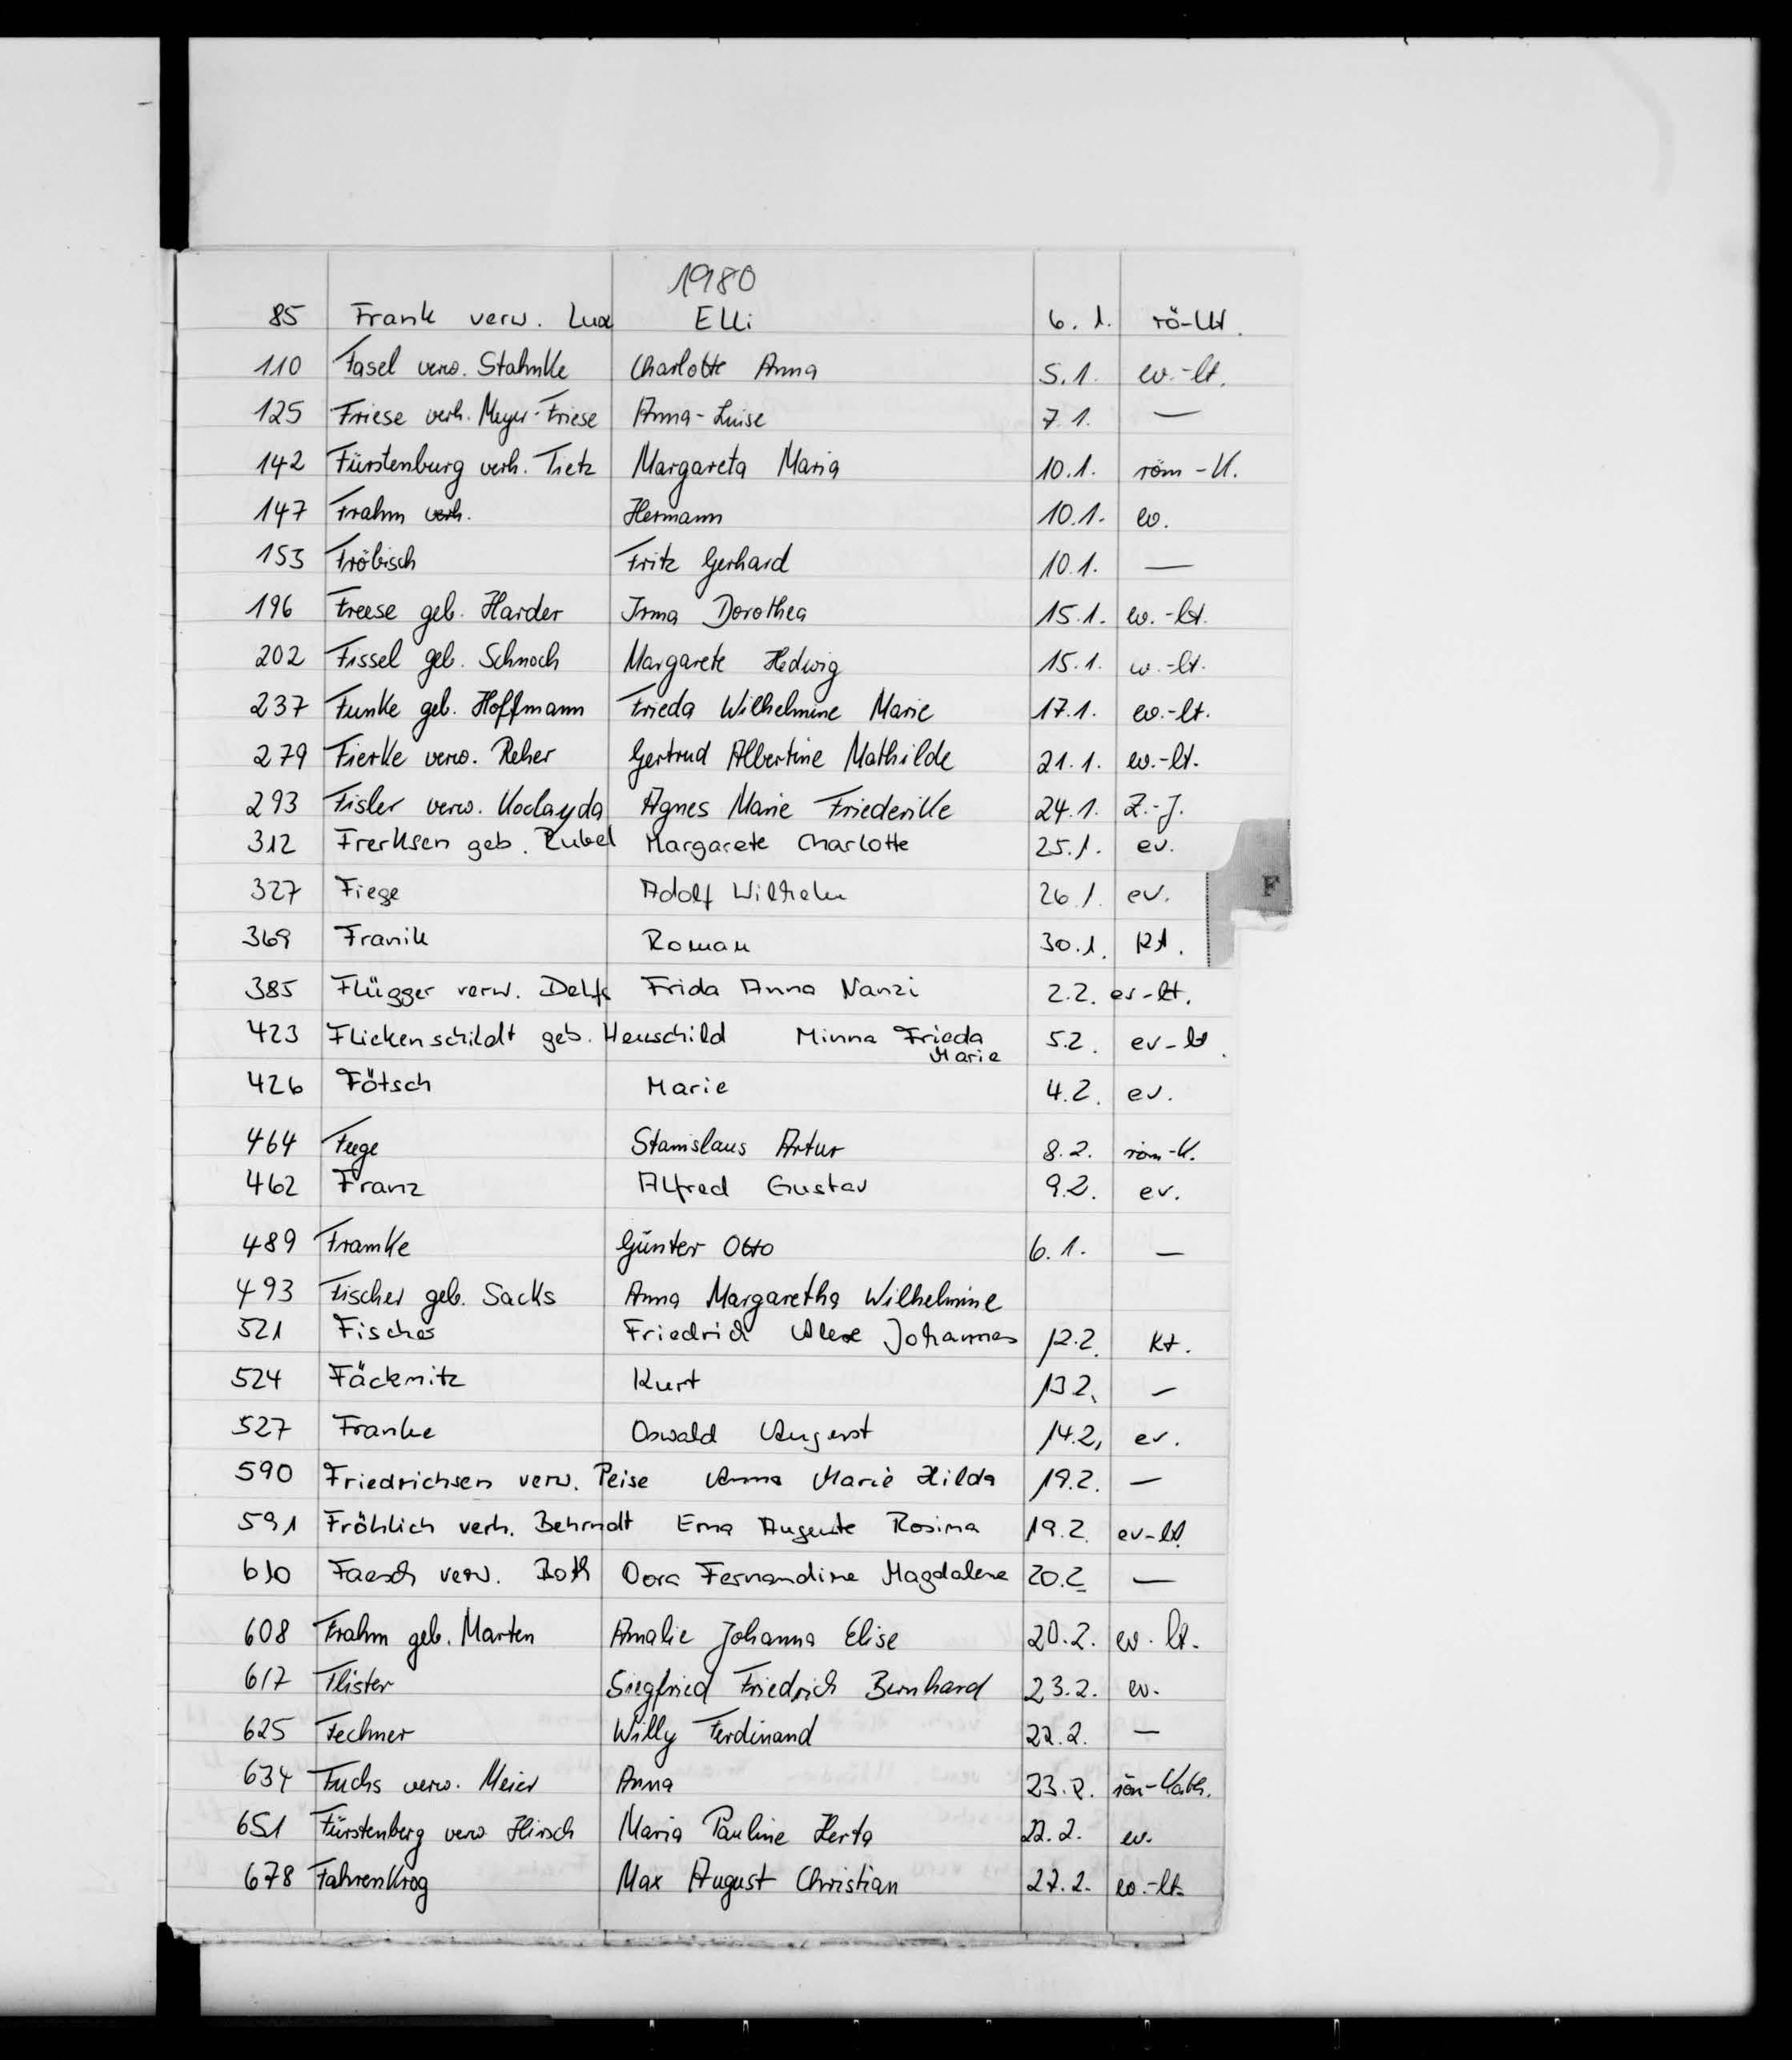 1980
85 Frank verw. Lux Elli 6.1. rö-kt.
110 Fasel verw. Stahnke Charlotte Anna 5.1. ev.-lt.
125 Friese verh. Meyer-Friese Anna-Luise 7.1. —
142 Fürstenburg verh. Tietz Margareta Maria 10.1. röm-K.
147 Frahm verh. Hermann 10.1. ev.
153 Fröbisch Fritz Gerhard 10.1. —
196 Freese geb. Harder Irma Dorothea 15.1. ev.-lt.
202 Fissel geb. Schnoch Margarete Hedwig 15.1. ev.-lt.
237 Funke geb. Hoffmann Frieda Wilhelmine Marie 17.1. ev.-lt.
279 Fierke verw. Reher Gertrud Albertine Mathilde 21.1. ev.-lt.
293 Fisler verw. Koclayda Agnes Marie Friederike 24.1. Z.-J.
312 Frerksen geb. Rubel Margarete Charlotte 25.1. ev.
327 Fiege Adolf Wilhelm 26.1. ev.
F
369 Franik Roman 30.1. kt.
385 Flügger verw. Delfs Frida Anna Nanzi 2.2. ev-lt.
423 Flickenschildt geb. Heuschild Minna Frieda 5.2. ev-lt.
Marie
426 Fötsch Marie 4.2. ev.
464 Feege Stanislaus Artur 8.2. röm-K.
462 Franz Alfred Gustav 9.2. ev.
489 Framke Günter Otto 6.1. —
493 Fischer geb. Sacks Anna Margaretha Wilhelmine
521 Fischer Friedrich Alex Johannes 12.2. Kt.
524 Fäckmitz Kurt 13.2. —
527 Franke Oswald August 14.2, ev.
590 Friedrichsen verw. Peise Anna Marie Hilda 19.2. —
591 Fröhlich verh. Behrndt Erna Auguste Rosina 19.2. ev-lt.
610 Faesch verw. Both Dora Fernandine Magdalene 20.2 —
608 Frahm geb. Marten Amalie Johanna Elise 20.2. ev. lt.
617 Flister Siegfried Friedrich Bernhard 23.2. ev.
625 Fechner Willy Ferdinand 22.2. —
634 Fuchs verw. Meier Anna 23.2. röm-Kath.
651 Fürstenberg verw Hirsch Maria Pauline Herta 22.2. ev.
678 Fahrenkrog Max August Christian 27.2. ev.-lt.